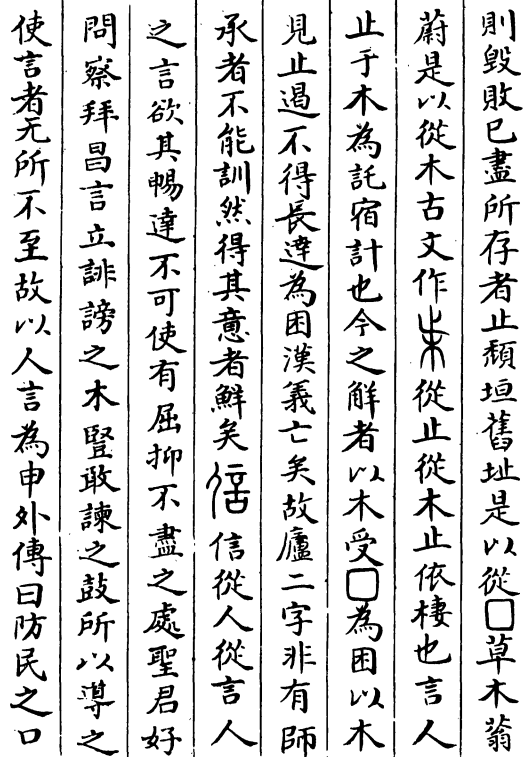 則毀敗已盡所存者止頹垣舊址是以從囗草木蓊
蔚是以從木古文作朱從止從木止依棲也言人
止于木為託宿計也今之解者以木受囗為困以木
見止遏不得長達為困漢義亡矣故廬二字非有師
承者不能訓然得其意者鮮矣信信從人從言人
之言欲其暢達不可使有屈抑不盡之處聖君好
問察拜昌言立誹謗之木豎敢諫之鼓所以導之
使言者无所不至故以人言為申外傳曰防民之口